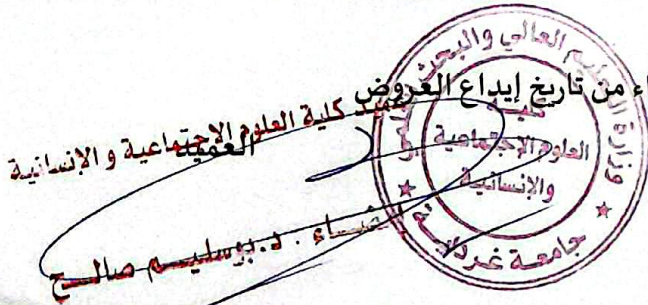 اء من تاريخ إيداع العروض
العميد
عميد كلية العلوم الاجتماعية و الإنسانية
إمضاء . د.بوسليم صالح
وزارة التعليم العالي والبحث العلمي
كلية
العلوم الاجتماعية
والإنسانية
جامعة غرداية